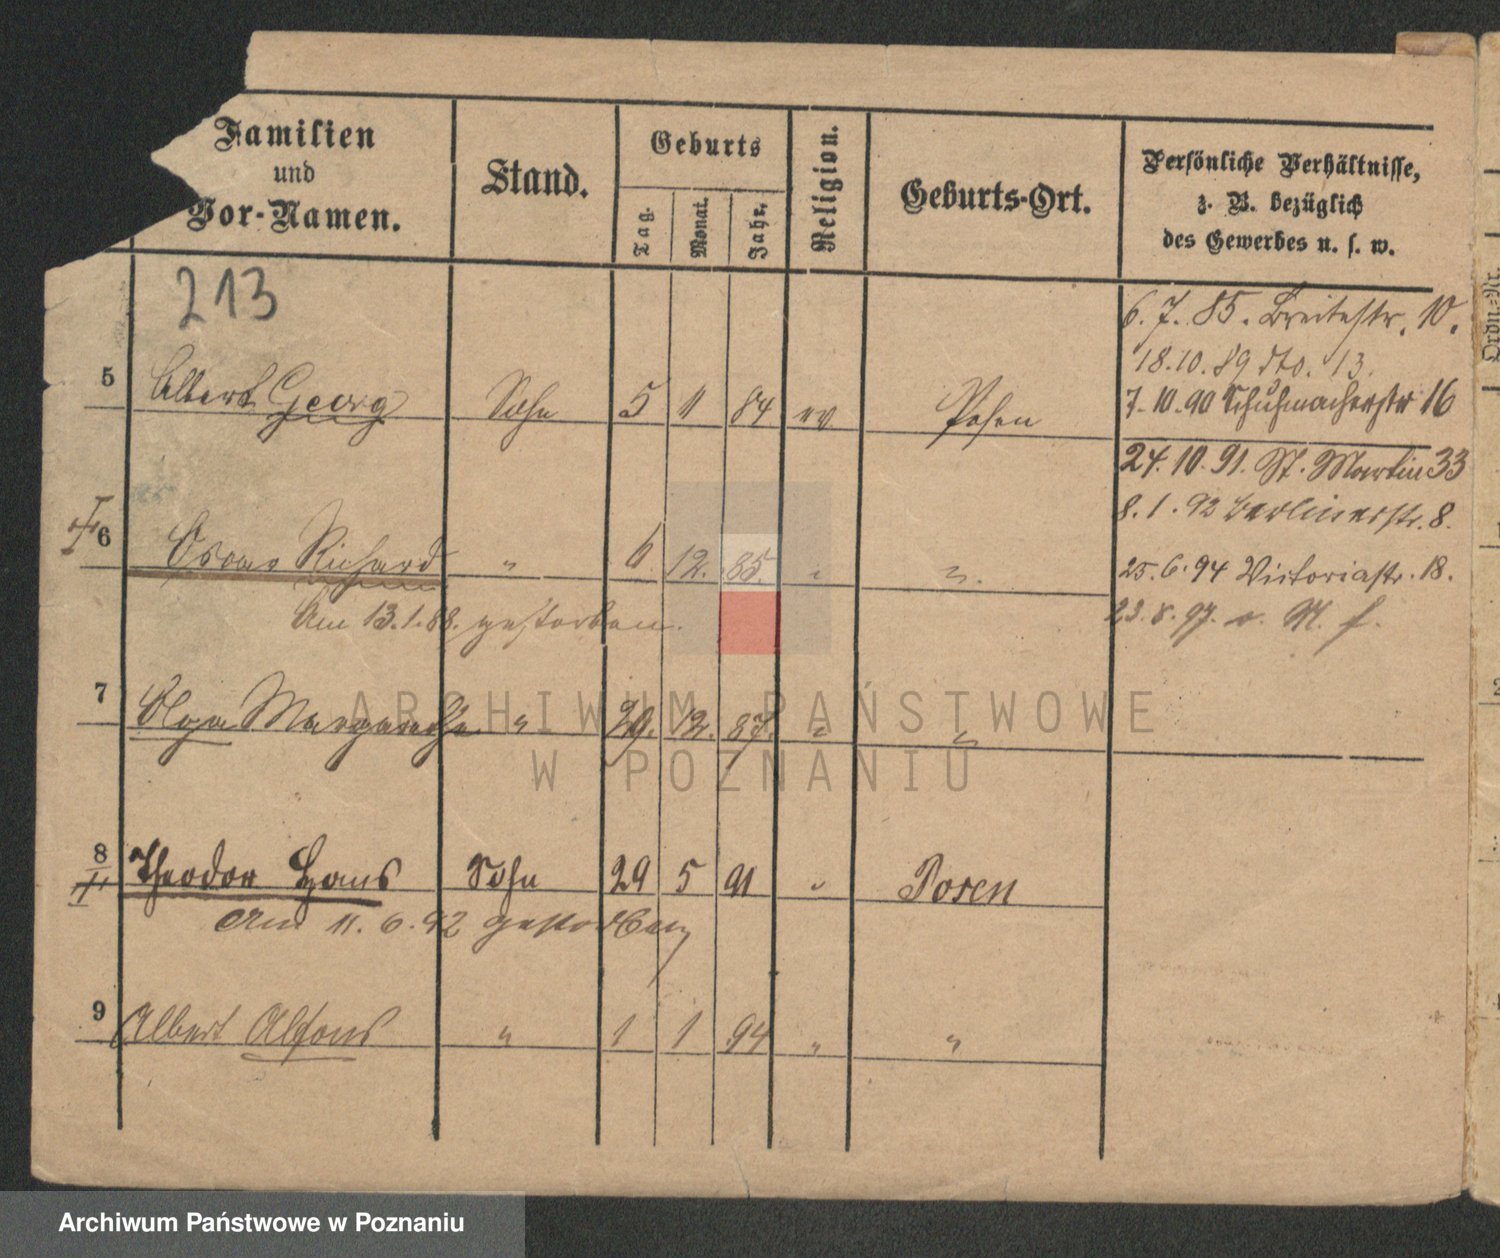 Familien
und
Vor-Namen.
Stand.
Geburts
Tag.
Monat.
Jahr.
Religion.
Geburts-Ort.
Persönliche Verhältnisse,
z. B. bezüglich
des Gewerbes u. s. w.
213
6. 7. 85. Breitestr. 10.
18.10.89 dto. 13.
7.10.90 Schuhmacherstr 16
5 Albert Georg Sohn 5 11 84 ev Posen
24.10.91. St. Martin 33
8.1.92 Berlinerstr. 8.
6 Oscar Richard " 6. 12. 85. " "
25.6.94 Victoriastr. 18.
Am 13.1.88. gestorben.
23.8.97. v. M. f.
7 Olga Margarethe " 29. 12. 87. " "
8 Theodor Hans Sohn 29 5 91 " Posen
Am 11.6.92 gestorben
9 Albert Alfons " 1 1 94 " "
Ordn.-Nr.
ARCHIWUM PAŃSTWOWE
W POZNANIU
Archiwum Państwowe w Poznaniu